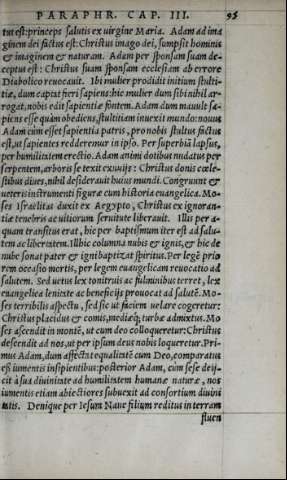 PARAPHR. CAP. III. 95
tus est: princeps salutis ex uirgine Maria. Adam ad ima
ginem dei factus est: Christus imago dei, sumpsit hominis
& imaginem & naturam. Adam per sponsam suam de-
ceptus est: Christus suam sponsam ecclesiam ab errore
Diabolico reuocauit. Ibi mulier prodidit initium stulti-
tiæ, dum captat fieri sapiens: hic mulier dum sibi nihil ar-
rogat, nobis edit sapientiæ fontem. Adam dum mauult sa-
piens esse quàm obediens, stultitiam inuexit mundo: nouus
Adam cùm esset sapientia patris, pro nobis stultus factus
est, ut sapientes redderemur in ipso. Per superbiā lapsus,
per humilitatem erectio. Adam animi dotibus nudatus per
serpentem, arboris se texit exuuijs: Christi donis cœle-
stibus diues, nihil desiderauit huius mundi. Congruunt &
ueteris instrumenti figuræ cum historia euangelica. Mo-
ses Israëlitas duxit ex Aegypto, Christus ex ignoran-
tiæ tenebris ac uitiorum seruitute liberauit. Illis per a-
quam transitus erat, hic per baptismum iter est ad salu-
tem ac libertatem. Illhic columna nubis & ignis, et hic de
nube sonat pater & igni baptizat spiritus. Per legē prio
rem occasio mortis, per legem euangelicam reuocatio ad
salutem. Sed uetus lex tonitruis ac fulminibus terret, lex
euangelica lenitate ac beneficijs prouocat ad salutē. Mo-
ses terribilis aspectu, sed sic ut faciem uelare cogeretur:
Christus placidus & comis, mediæq; turbæ admixtus. Mo
ses ascendit in montē, ut cum deo colloqueretur: Christus
descendit ad nos, ut per ipsum deus nobis loqueretur. Pri-
mus Adam, dum affectat æqualitatē cum Deo, comparatus
est iumentis insipientibus: posterior Adam, cùm sese deij-
cit à sua diuinitate ad humilitatem humanæ naturæ, nos
iumentis etiam abiectiores subuexit ad consortium diuini
tatis. Denique per Iesum Naue filium reditus in terram
fluen